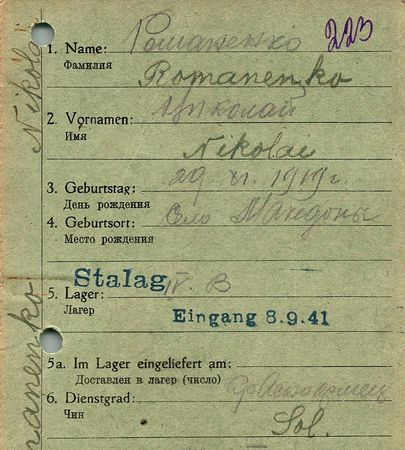 223
1. Name: Романенко
Фамилия
Romanenko
2. Vornamen: Николай
Имя
Nikolai
3. Geburtstag: 29. VI. 1919 г.
День рождения
4. Geburtsort: Село
Место рождения
Stalag IV. B
5. Lager:
Лагерь
Eingang 8.9.41
5a. Im Lager eingeliefert am:
Доставлен в лагерь (число)
6. Dienstgrad: Красноармеец
Чин
Sol.
Nikolai
Romanenko